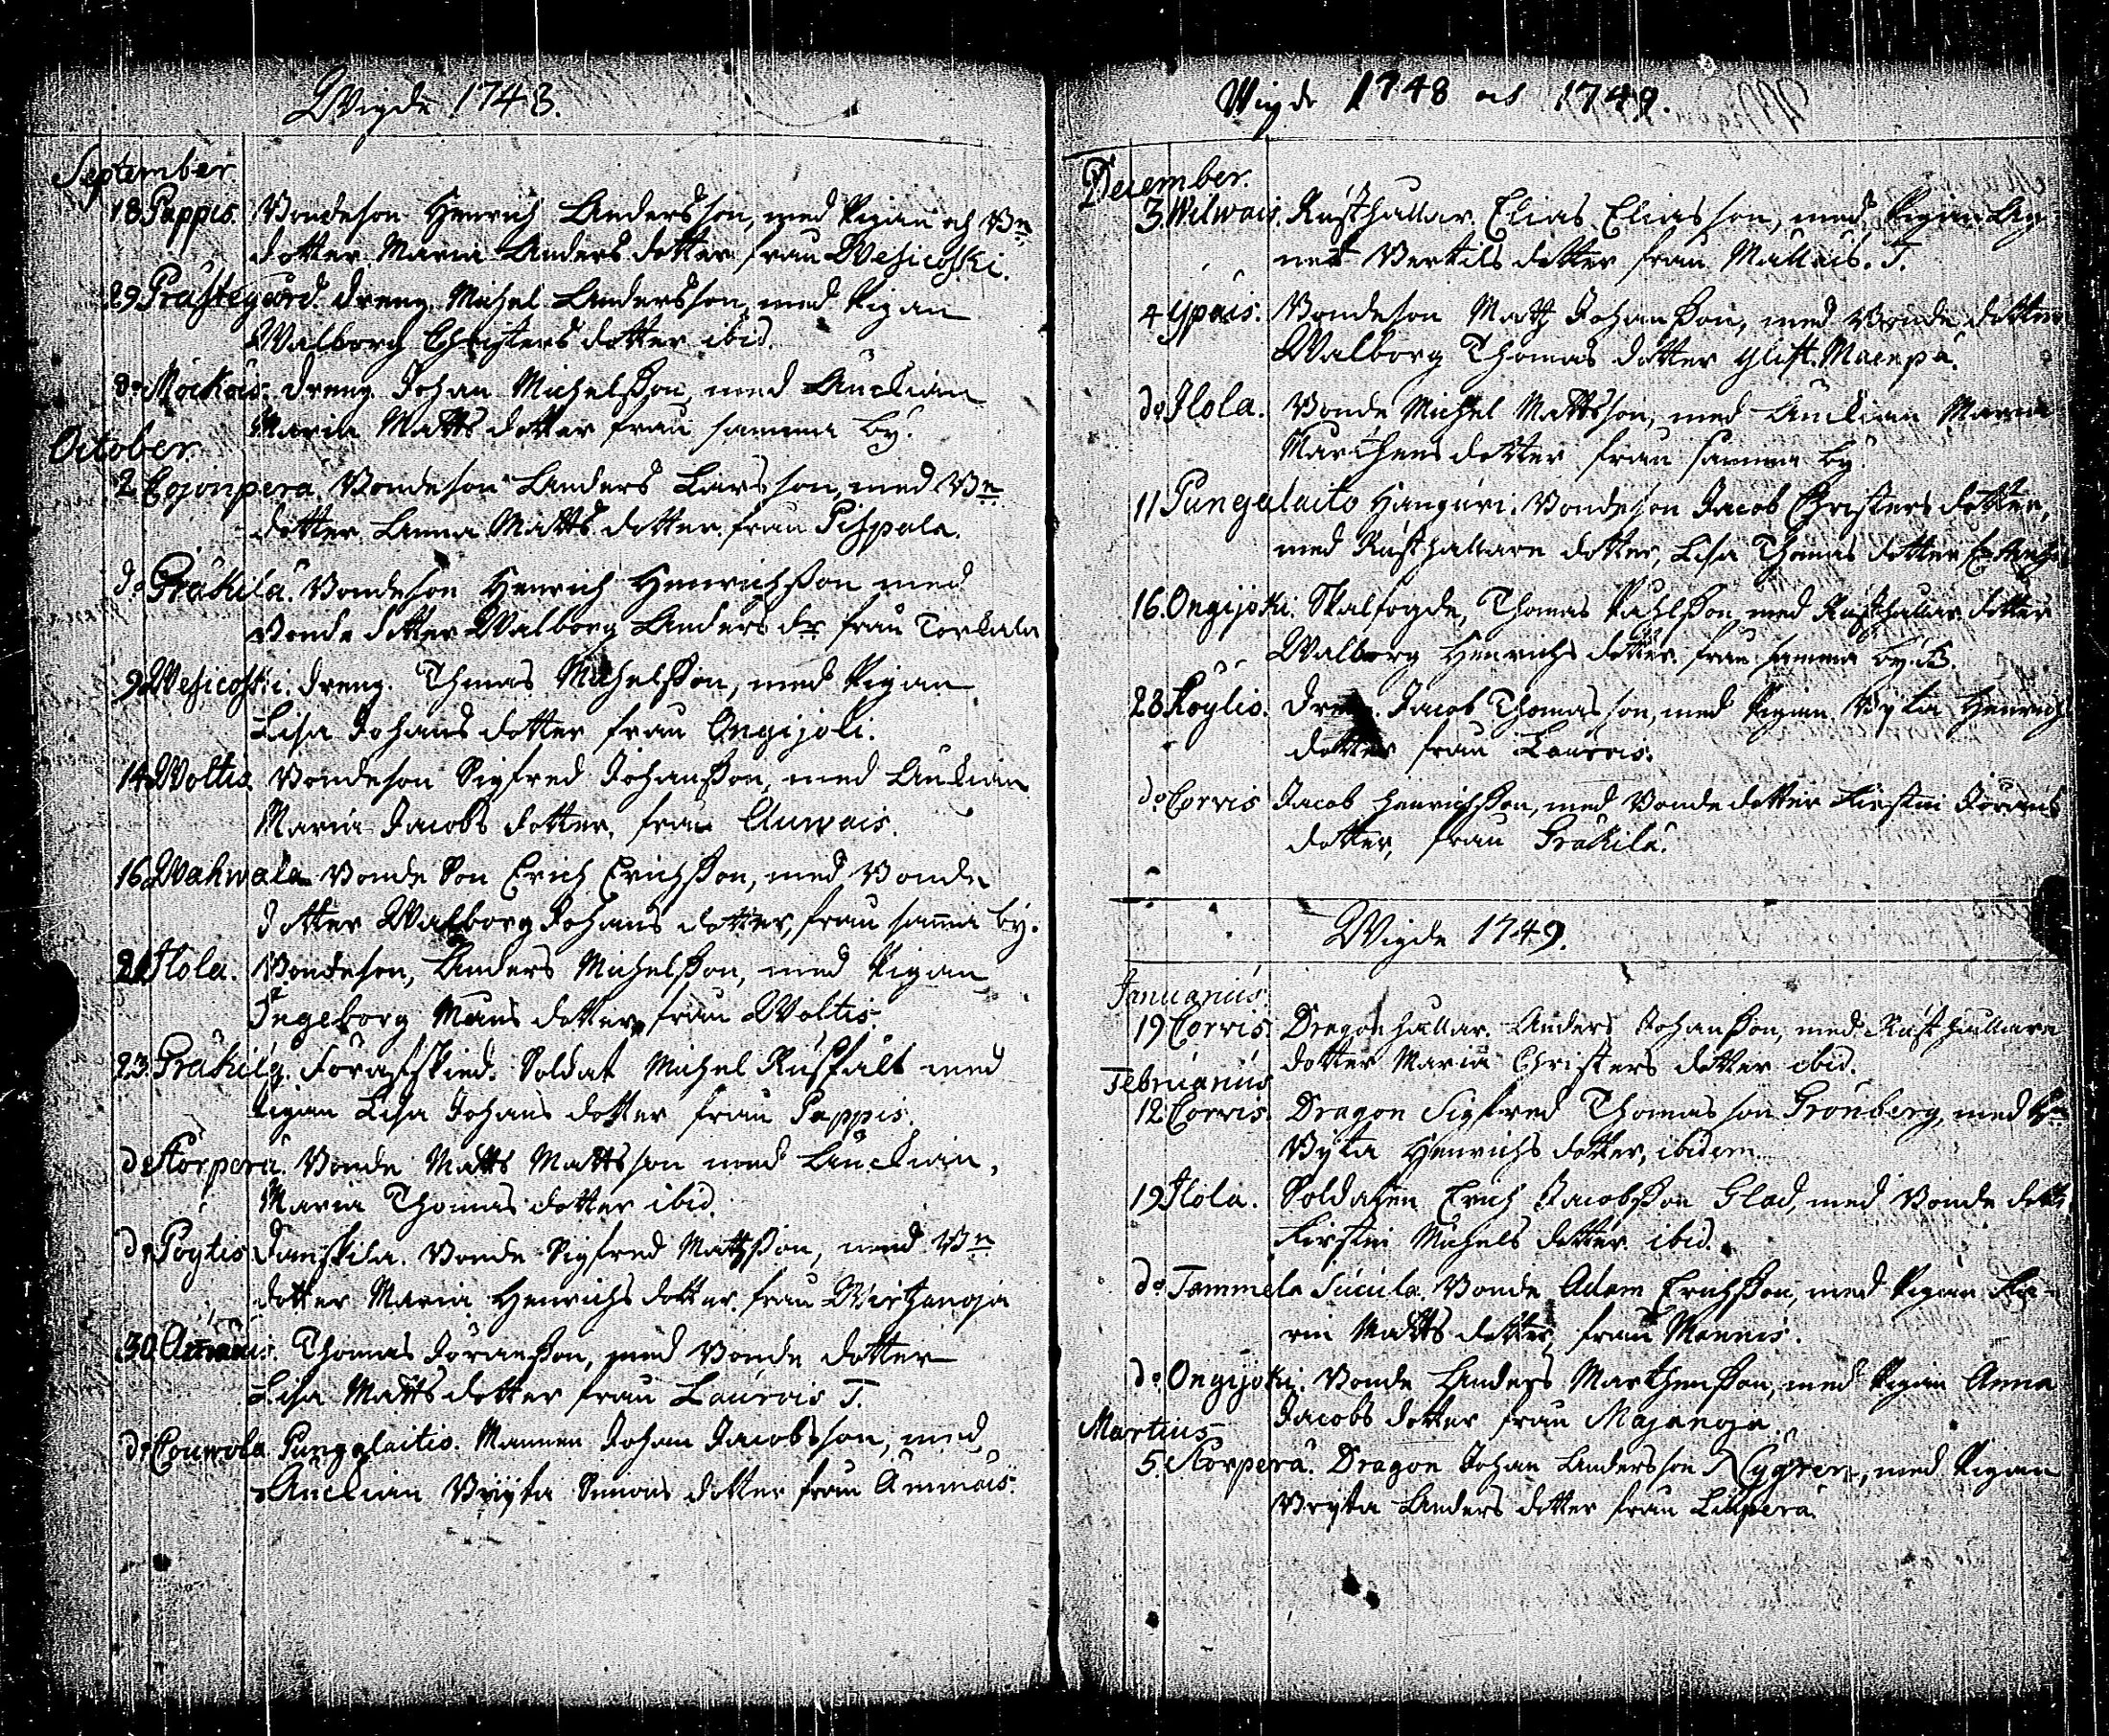 Wigde 1743.
September
18 Pappis. Bondeson Henrich Andersson, med Pigan och Bn
dotter Maria Anders dotter från Wesicoski.
29 Prästegård. Dreng Michel Andersson, med Pigan
Walborg Christers dotter ibid.
do Mäckois. Dreng Johan Michelsson, med Änckian
Maria Matts dotter från samma by.
October
2 Cojonperä. Bondeson Anders Larsson, med Bn
dotter Anna Matts dotter från Pihpala.
do Gräkilä. Bondeson Henrich Henrichsson med
Bonde dotter Walborg Anders dr från Torkala
9 Wesicoski. Dreng Thomas Michelsson, med Pigan
Lisa Johans dotter från Ongijoki.
14 Woltis. Bondeson Sigfred Johansson, med Änckian
Maria Jacobs dotter, från Auwais.
16 Wahwala Bonde Son Erich Erichsson, med Bonde
dotter Walborg Johans dotter, från sama by.
21 Ilola. Bondeson, Anders Michelsson, med Pigan
Ingeborg Måns dotter från Woltis.
23. Gräkilä. Förafskied. Soldat Michel Rusfält med
Pigan Lisa Johans dotter från Pappis.
do Korperä. Bonde Matts Mattsson med Änckian,
Maria Thomas dotter ibid.
do Pöytis Jamskila. Bonde Sigfred Mattsson, med Bn
dotter Maria Henrichs dotter från Wirtzanoja
30 Thomas Jöransson, med Bonde dotter
Lisa Matts dotter från Laurois T.
do Couwola Pungalaitio. Mannen Johan Jacobsson, med
Änckian Bryta Simons dotter från Ammais.
Wigde 1748 och 1749.
December.
3 Wilwais. Rusthållar Elias Eliasson, med Pigan Ag-
net Bertils dotter från Mällais. T.
4 Ypäis. Bondeson Matz Johansson, med Bonde dotter
Walborg Thomas dotter Maenpä.
do Ilola. Bonde Michel Mattsson, med Änckian Maria
Marthens dotter från samma by.
11 Pungalaito Hanguri. Bondeson Jacob Christers dotter,
med Rusthållare dotter, Lisa Thomas dotter
16. Ongijoki. Skalfogde, Thomas Påhlsson med Rusthållar dotter
Walborg Henrichs dotter från samma by.
28 Köylis. Dreng Jacob Thomasson, med Pigan Bryta Henrichs
dotter från Laurois.
do Corvis Jacob Henrichsson, med Bonde dotter Kirstin Jörans
dotter, från Gräkilä.
Wigde 1749.
Januarius.
19 Corvis. Dragonhållar Anders Johansson, med Rusthållare
dotter Maria Christers dotter ibid.
Februarius
12 Corvis. Dragon Sigfred Thomasson Grönberg, med
Bryta Henrichs dotter, ibidem.
19 Ilola. Soldaten Erich Jacobsson Glad, med Bonde dott.
Kirstin Michels dotter ibid.
do Tammela Sucula. Bonde Adam Erichsson, med Pigan Ka-
rin Matts dotter från Mennis.
do Ongijoki. Bonde Anders Marthensson, med Pigan Anna
Jacobs dotter från Majanoja.
Martius
5. Korperä. Dragon Johan Andersson Nygren, med Pigan
Bryta Anders dotter från Liuperä.